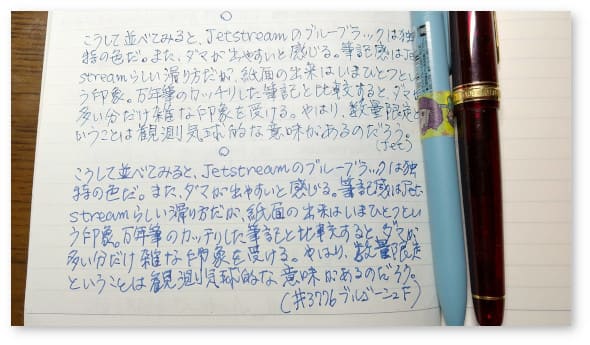 こうして並べてみると、Jetstreamのブルーブラックは独
特の色だ。また、ダマが出やすいと感じる。筆記感はJet-
streamらしい滑り方だが、紙面の出来はいまひとつとい
う印象。万年筆のカッチリした筆記と比較すると、ダマが
多い分だけ雑な印象を受ける。やはり、数量限定と
いうことは観測気球的な意味があるのだろう。
(Jet)
こうして並べてみると、Jetstreamのブルーブラックは独
特の色だ。また、ダマが出やすいと感じる。筆記感はJet-
streamらしい滑り方だが、紙面の出来はいまひとつとい
う印象。万年筆のカッチリした筆記と比較すると、ダマが
多い分だけ雑な印象を受ける。やはり、数量限定
ということは観測気球的な意味があるのだろう。
(#3776ブルゴーニュF)